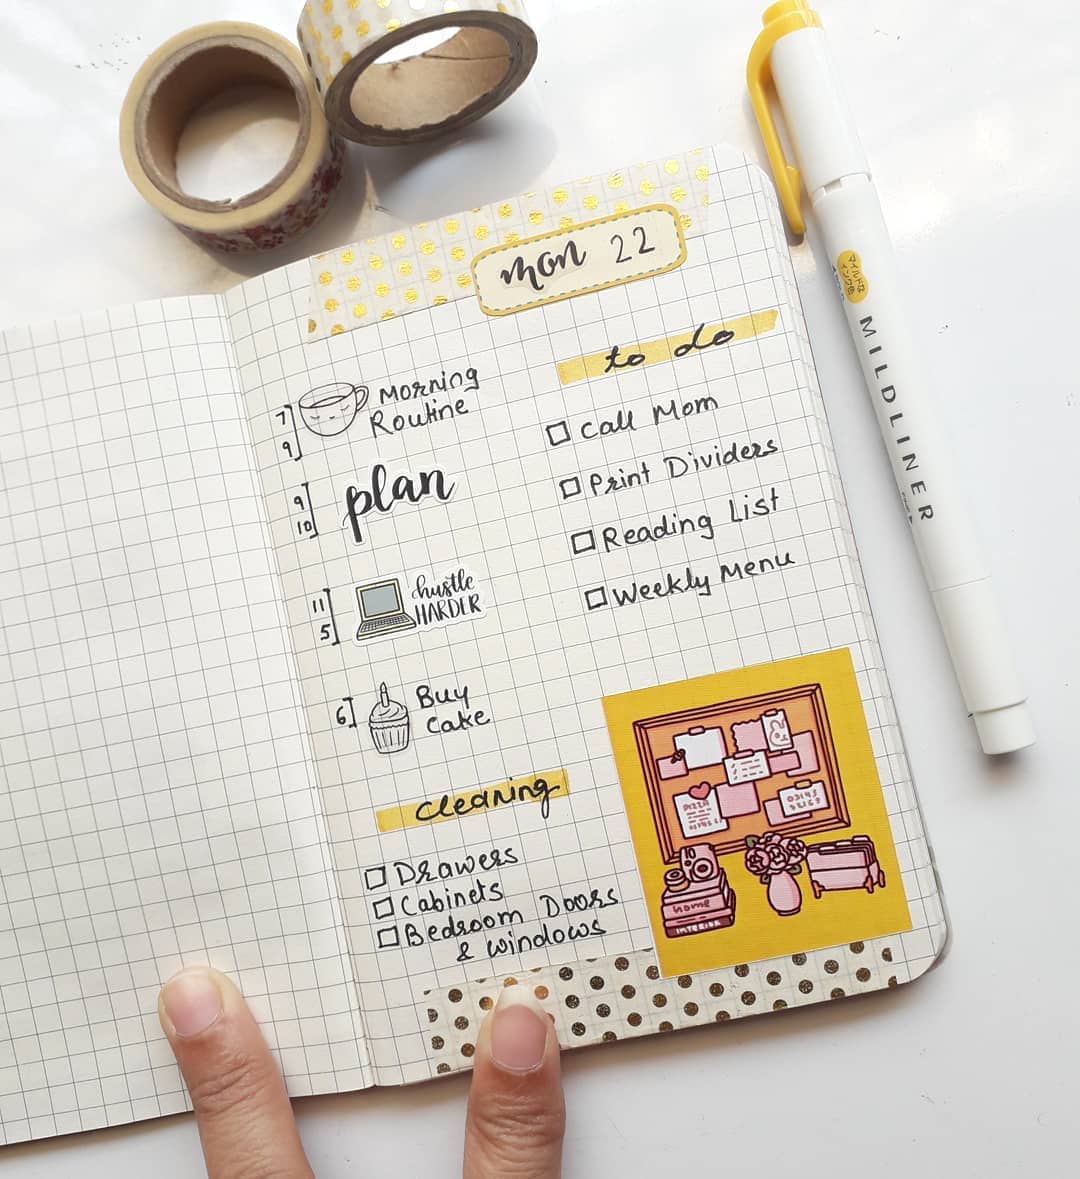 mon 22
7
9
Morning
Routine
9
10
plan
11
5
hustle
HARDER
6
Buy
Cake
to do
Call Mom
Print Dividers
Reading List
Weekly Menu
cleaning
Drawers
Cabinets
Bedroom Doors
& windows
PIZZA
home
INTERIOR
MILDLINER